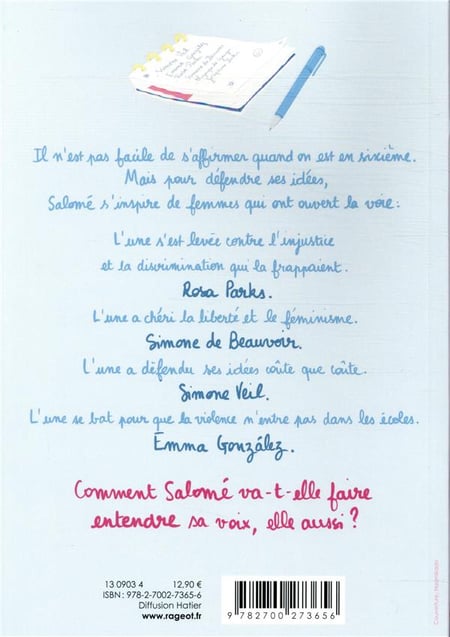 Simone Veil
Emma González
Rosa Parks
Simone de Beauvoir
Il n'est pas facile de s'affirmer quand on est en sixième.
Mais pour défendre ses idées,
Salomé s'inspire de femmes qui ont ouvert la voie :
L'une s'est levée contre l'injustice
et la discrimination qui la frappaient.
Rosa Parks.
L'une a chéri la liberté et le féminisme.
Simone de Beauvoir.
L'une a défendu ses idées coûte que coûte.
Simone Veil.
L'une se bat pour que la violence n'entre pas dans les écoles.
Emma González.
Comment Salomé va-t-elle faire
entendre sa voix, elle aussi ?
13 0903 4 12,90 €
ISBN : 978-2-7002-7365-6
Diffusion Hatier
www.rageot.fr
9 782700 273656